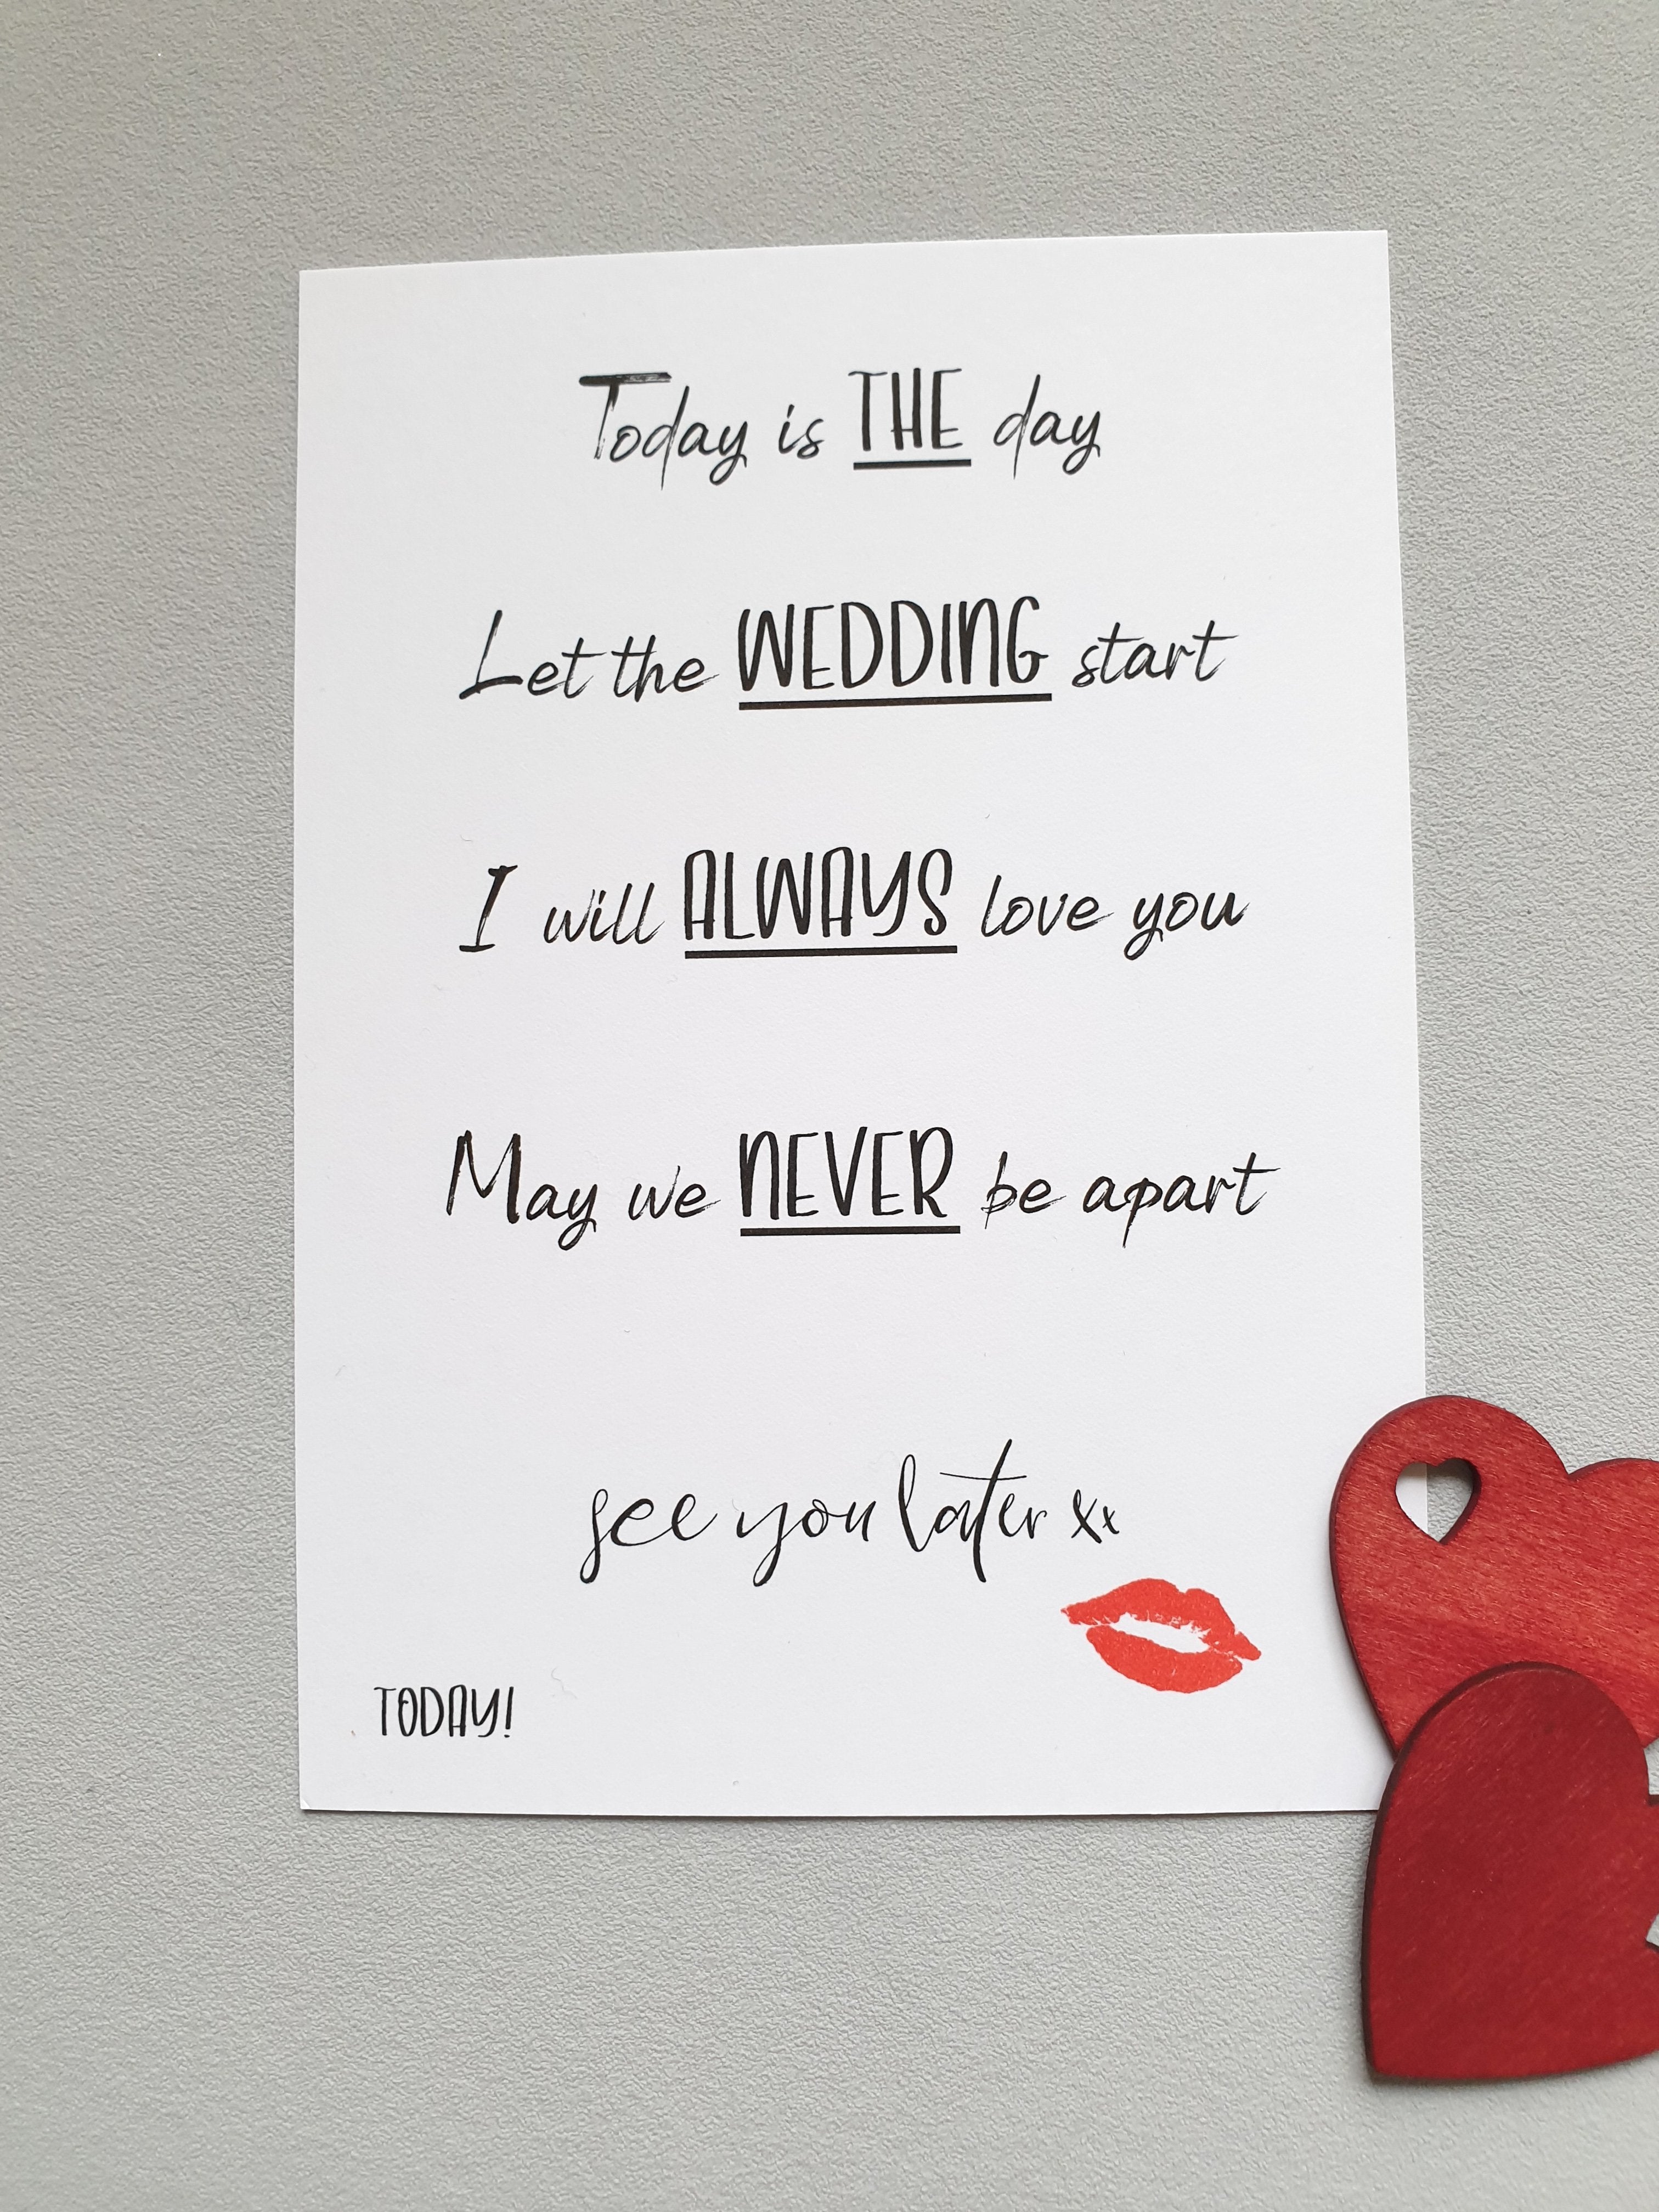 Today is THE day
Let the WEDDING start
I will ALWAYS love you
May we NEVER be apart
see you later xx
TODAY!